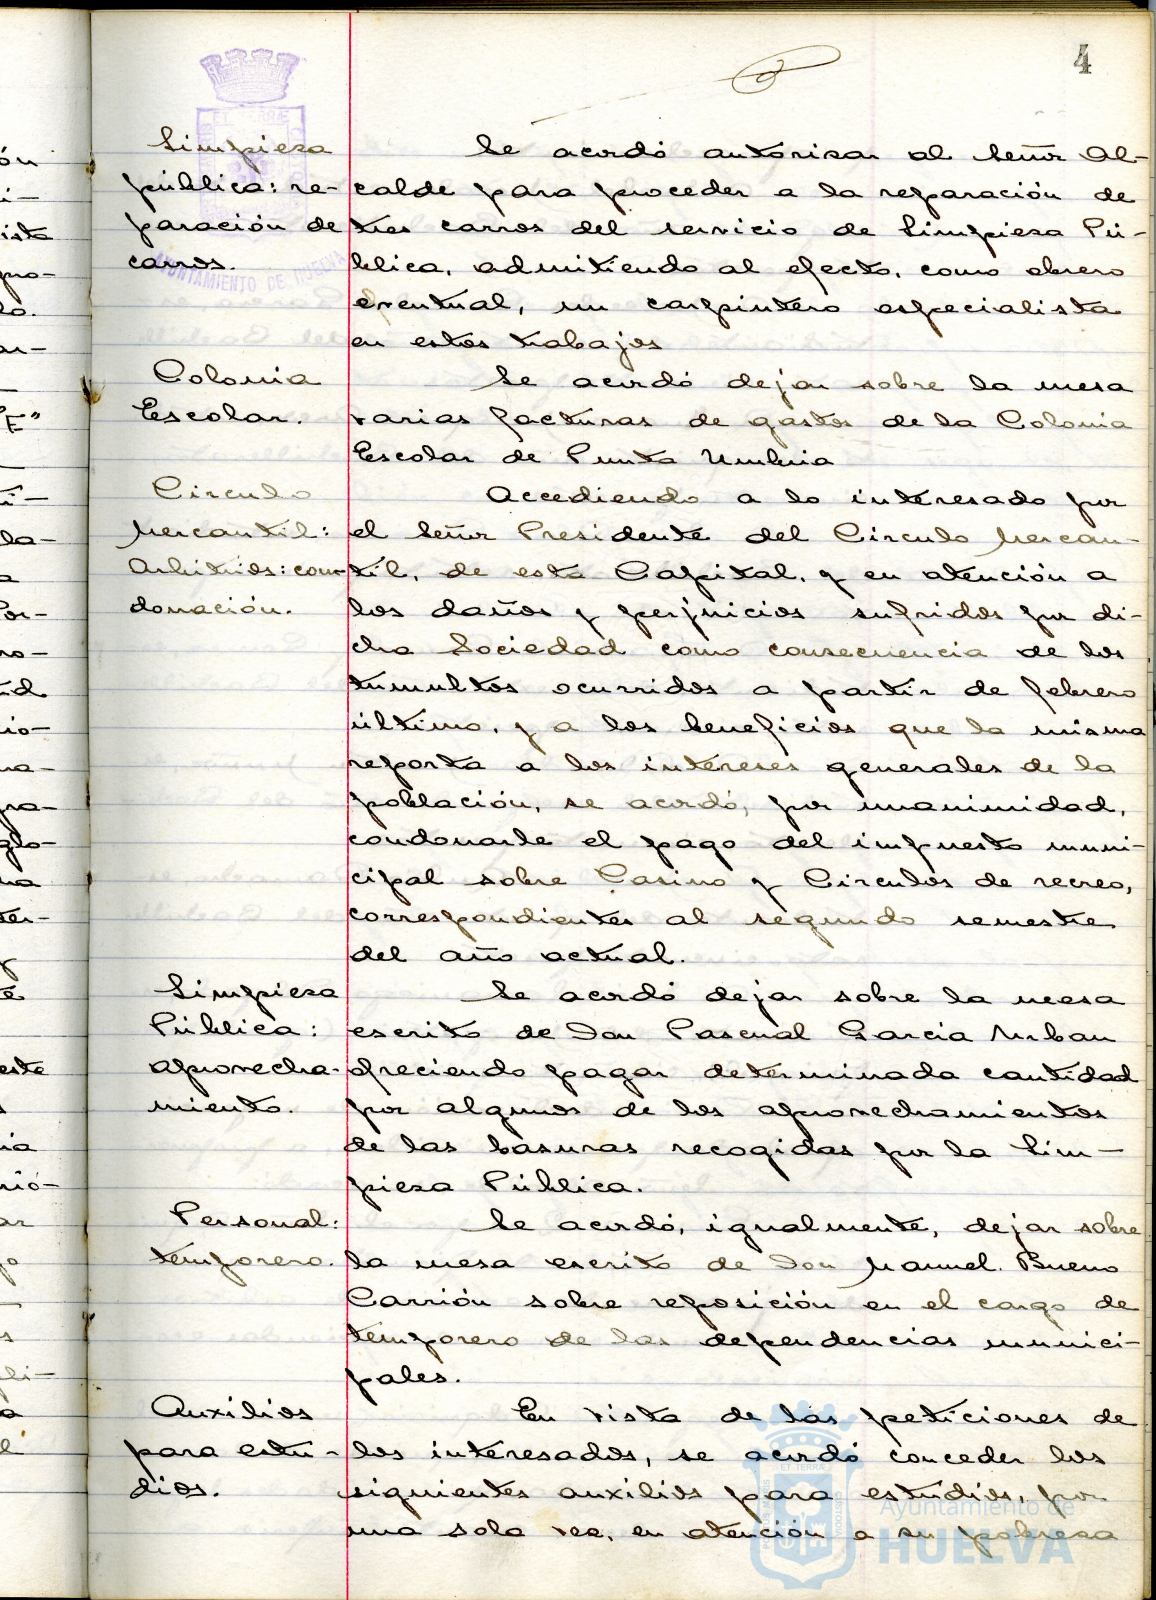 4
Limpieza
pública: re-
paración de
carros.
Se acordó autorizar al Señor Al-
calde para proceder a la reparación de
tres carros del servicio de Limpieza Pú-
blica, admitiendo al efecto, como obrero
eventual, un carpintero especialista
en estos trabajos
Colonia
Escolar.
Se acordó dejar sobre la mesa
varias facturas de gastos de la Colonia
Escolar de Punta Umbria
Circulo
Mercantil:
Arbitrios: con-
donación.
Accediendo a lo interesado por
el Señor Presidente del Circulo Mercan-
til, de esta Capital, y en atención a
los daños y perjuicios sufridos por di-
cha Sociedad como consecuencia de los
tumultos ocurridos a partir de febrero
último, y a los beneficios que la misma
reporta a los intereses generales de la
población, se acordó, por unanimidad,
condonarle el pago del impuesto muni-
cipal sobre Casino y Circulos de recreo,
correspondientes al segundo semestre
del año actual.
Limpieza
Pública:
aprovecha-
miento.
Se acordó dejar sobre la mesa
escrito de Don Pascual Garcia Urban
ofreciendo pagar determinada cantidad
por algunos de los aprovechamientos
de las basuras recogidas por la Lim-
pieza Pública.
Personal:
temporero.
Se acordó, igualmente, dejar sobre
la mesa escrito de Don Manuel Bueno
Carrión sobre reposición en el cargo de
temporero de las dependencias munici-
pales.
Auxilios
para estu-
dios.
En vista de las peticiones de
los interesados, se acordó conceder los
siguientes auxilios para estudios, por
una sola vez, en atención a su pobreza
Ayuntamiento de
HUELVA